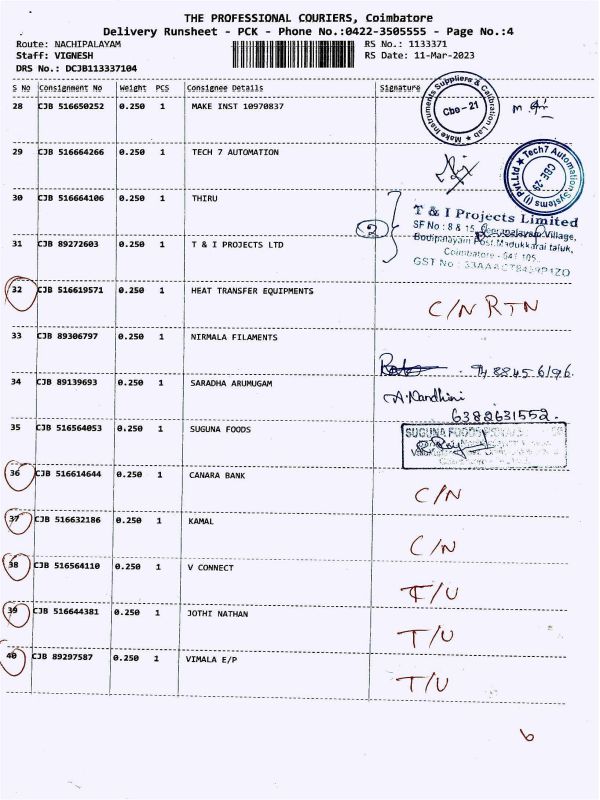 THE PROFESSIONAL COURIERS, Coimbatore
Delivery Runsheet - PCK - Phone No.:0422-3505555 - Page No.:4
Route: NACHIPALAYAM RS No.: 1133371
Staff: VIGNESH RS Date: 11-Mar-2023
DRS No.: DCJB113337104
S No Consignment No Weight PCS Consignee Details Signature
28 CJB 516650252 0.250 1 MAKE INST 10970837
Make Instruments Suppliers & Calibration Lab
Cbe - 21
29 CJB 516664266 0.250 1 TECH 7 AUTOMATION
Tech7 Automation Systems (I) Pvt.Ltd
CBE - 25
30 CJB 516664106 0.250 1 THIRU
2
T & I Projects Limited
SF No : 8 & 15, Village,
Bodipalayam Post, Madukkarai taluk,
Coimbatore - 641 105.
GST No :
31 CJB 89272603 0.250 1 T & I PROJECTS LTD
32 CJB 516619571 0.250 1 HEAT TRANSFER EQUIPMENTS
C/N RTN
33 CJB 89306797 0.250 1 NIRMALA FILAMENTS
34 CJB 89139693 0.250 1 SARADHA ARUMUGAM
A. Nandhini
6382631552.
35 CJB 516564053 0.250 1 SUGUNA FOODS
SUGUNA FOODS
36 CJB 516614644 0.250 1 CANARA BANK
C/N
37 CJB 516632186 0.250 1 KAMAL
C/N
38 CJB 516564110 0.250 1 V CONNECT
T/U
39 CJB 516644381 0.250 1 JOTHI NATHAN
T/U
40 CJB 89297587 0.250 1 VIMALA E/P
T/U
6